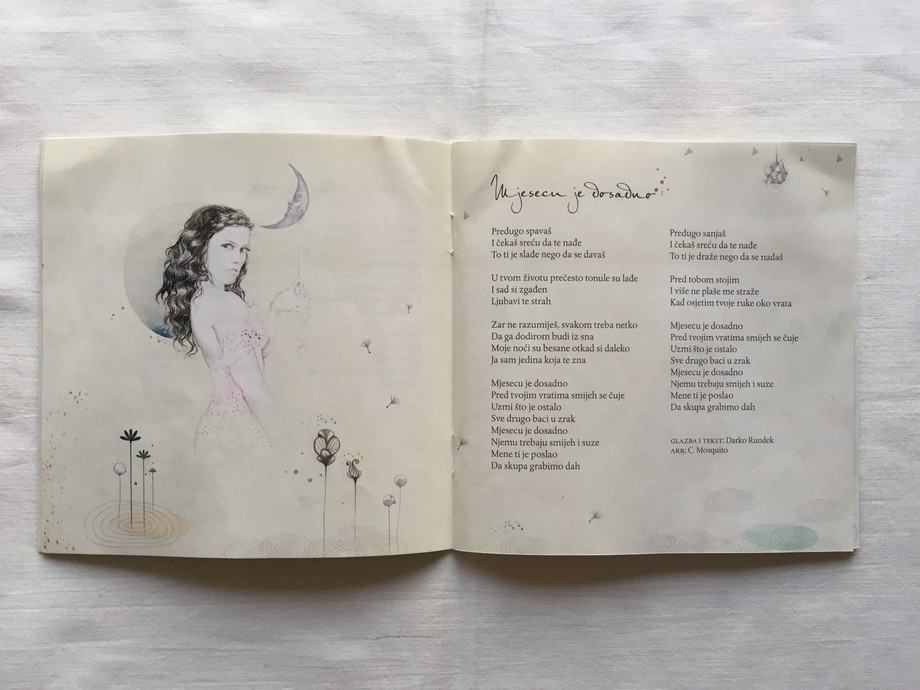 Mjesecu je dosadno
Predugo spavaš
I čekaš sreću da te nađe
To ti je slađe nego da se davaš
U tvom životu prečesto tonule su lađe
I sad si zgađen
Ljubavi te strah
Zar ne razumiješ, svakom treba netko
Da ga dodirom budi iz sna
Moje noći su besane otkad si daleko
Ja sam jedina koja te zna
Mjesecu je dosadno
Pred tvojim vratima smijeh se čuje
Uzmi što je ostalo
Sve drugo baci u zrak
Mjesecu je dosadno
Njemu trebaju smijeh i suze
Mene ti je poslao
Da skupa grabimo dah
Predugo sanjaš
I čekaš sreću da te nađe
To ti je draže nego da se nadaš
Pred tobom stojim
I više ne plaše me straže
Kad osjetim tvoje ruke oko vrata
Mjesecu je dosadno
Pred tvojim vratima smijeh se čuje
Uzmi što je ostalo
Sve drugo baci u zrak
Mjesecu je dosadno
Njemu trebaju smijeh i suze
Mene ti je poslao
Da skupa grabimo dah
GLAZBA I TEKST: Darko Rundek
ARR: C. Mosquito